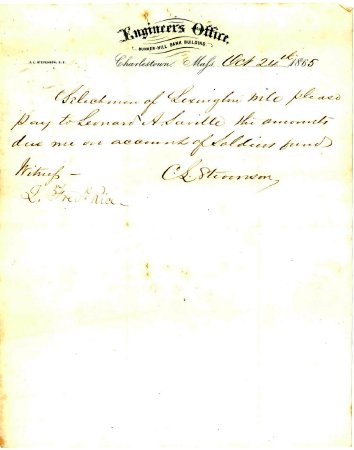 Engineer's Office,
BUNKER-HILL BANK BUILDING,
Charlestown, Mass. Oct 24th 1865
Selectmen of Lexington will please
pay to Leonard A Saville the amounts
due me on account of Soldiers fund
Witness — C L Stevenson
L. Fred. Rice